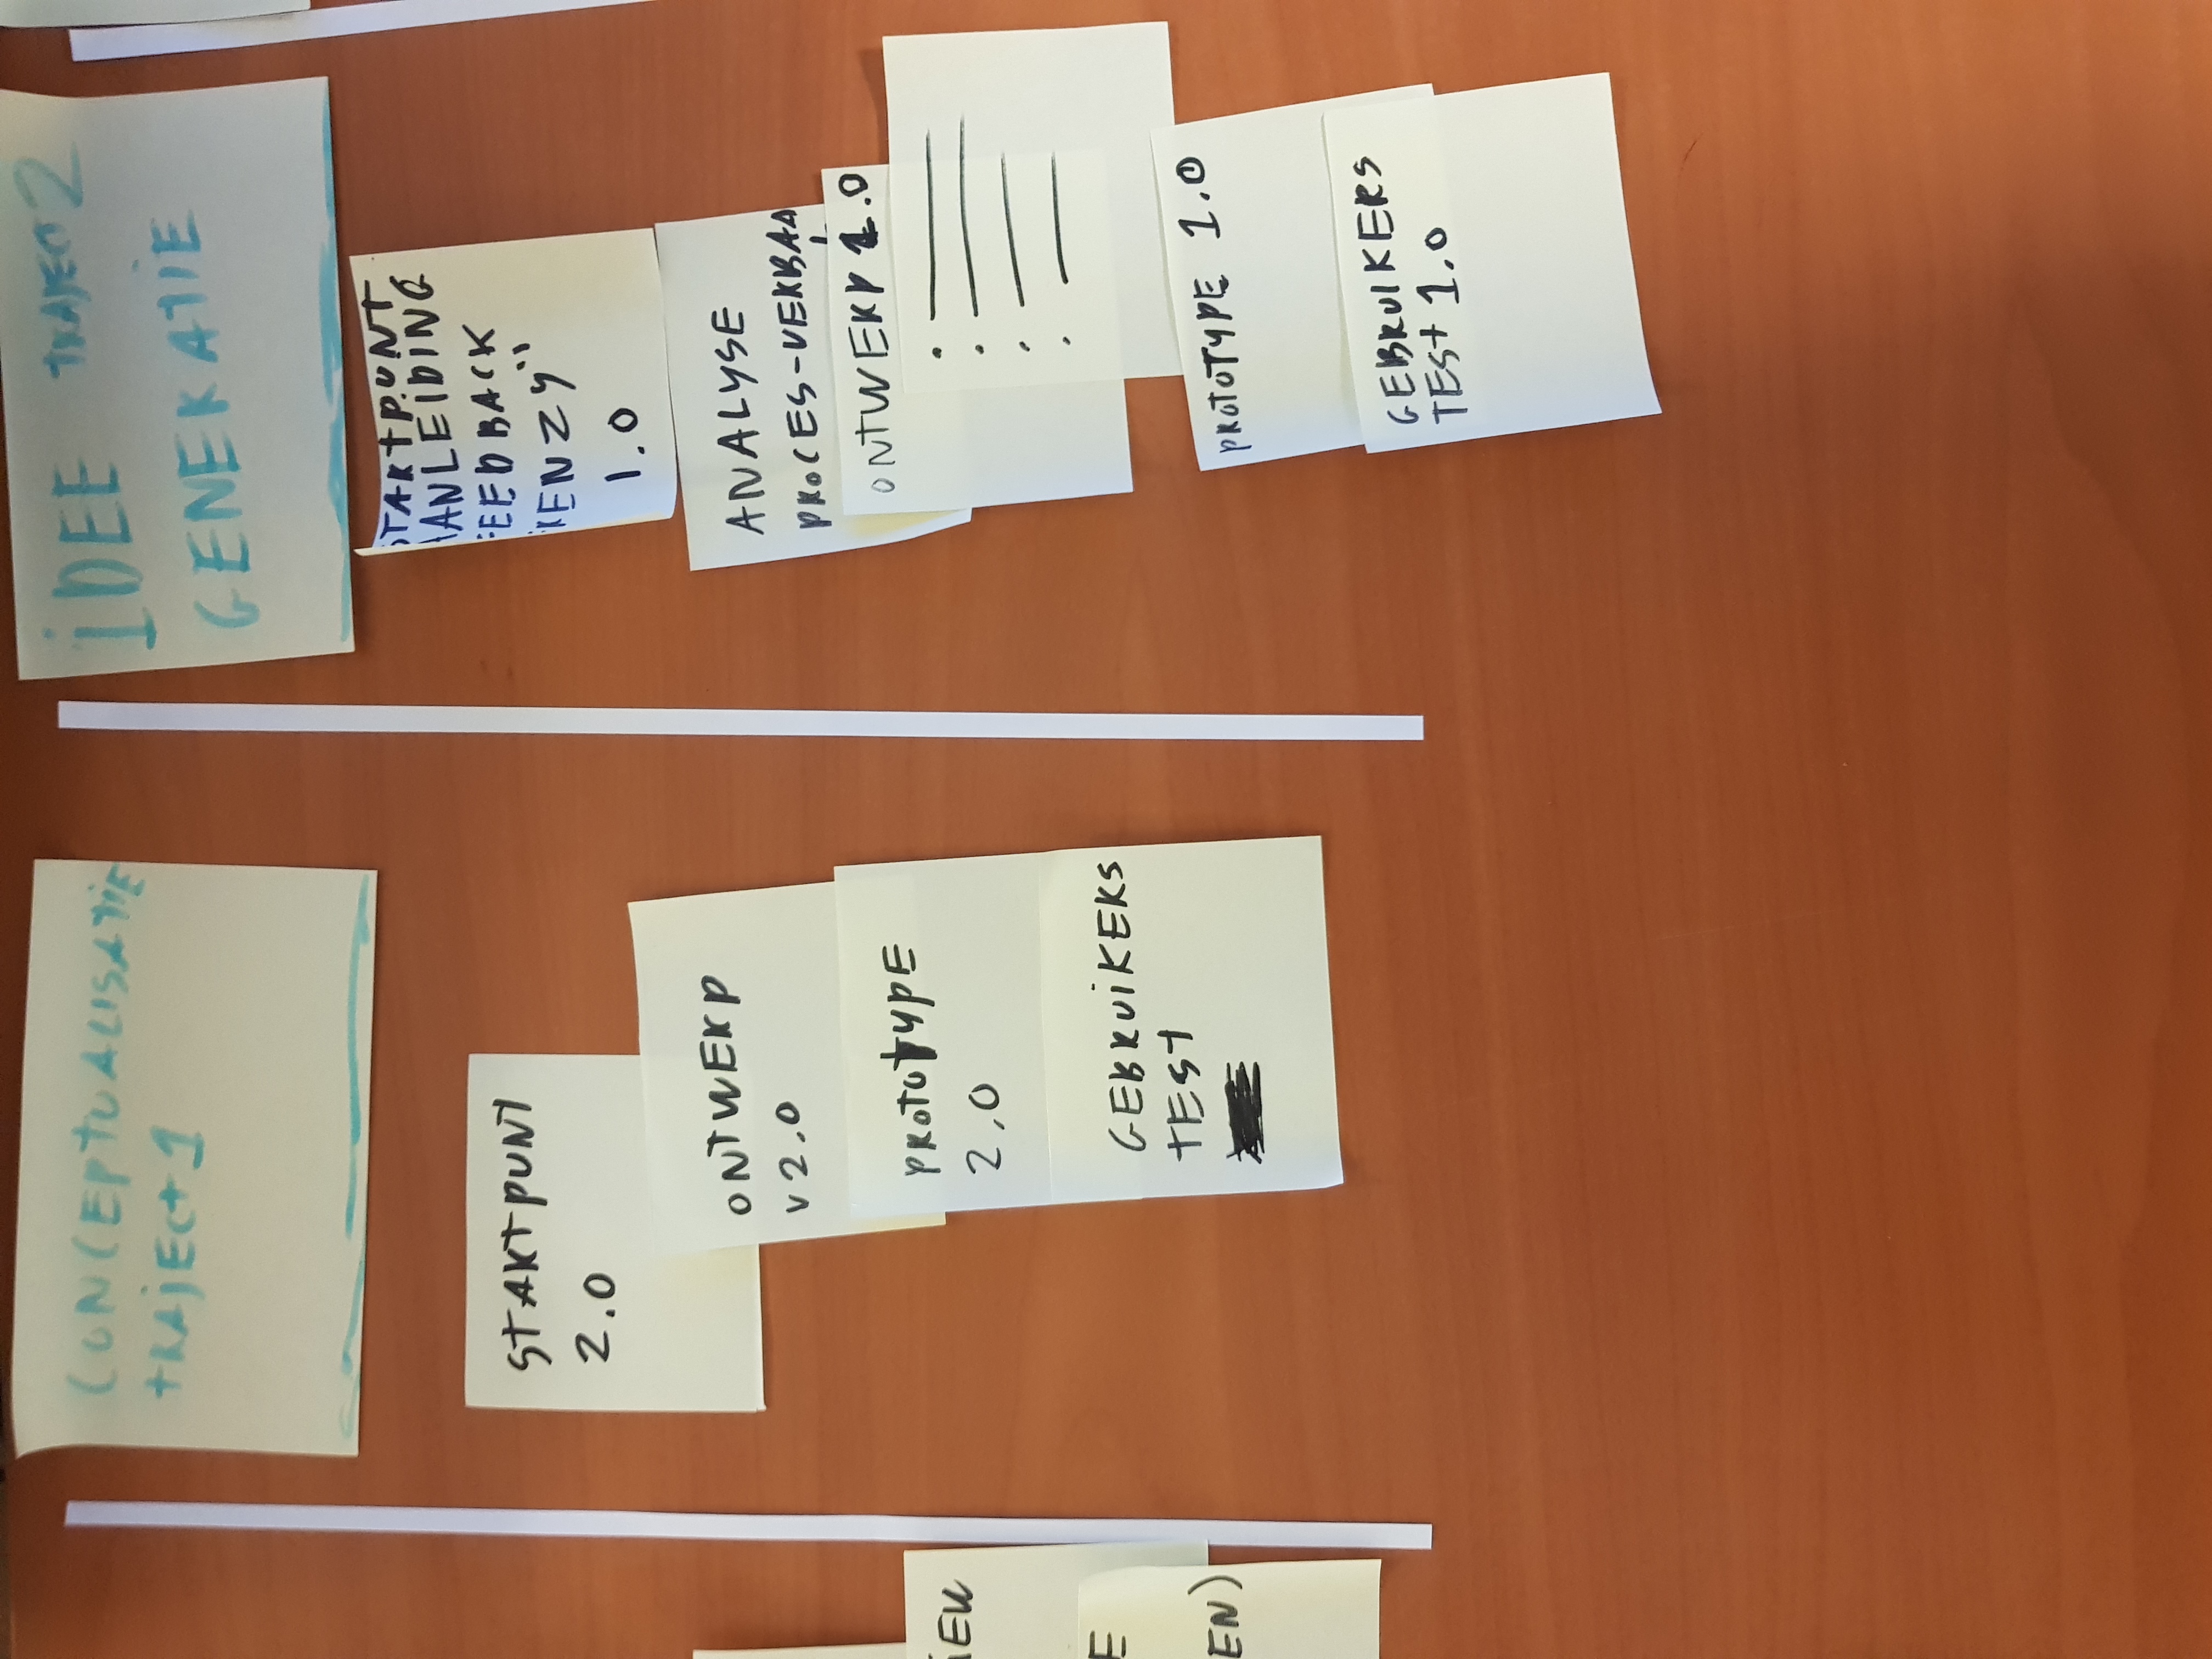 CONCEPTUALISATIE
TRAJECT 1
STARTPUNT
2.0
ONTWERP
V2.0
PROTOTYPE
2.0
GEBRUIKERS
TEST
IDEE TRAJECT 2
GENERATIE
STARTPUNT
AANLEIDING
FEEDBACK
"KENZY"
1.0
ANALYSE
PROCES-VERBAAL
ONTWERP 1.0
PROTOTYPE 1.0
GEBRUIKERS
TEST 1.0
E
EN)